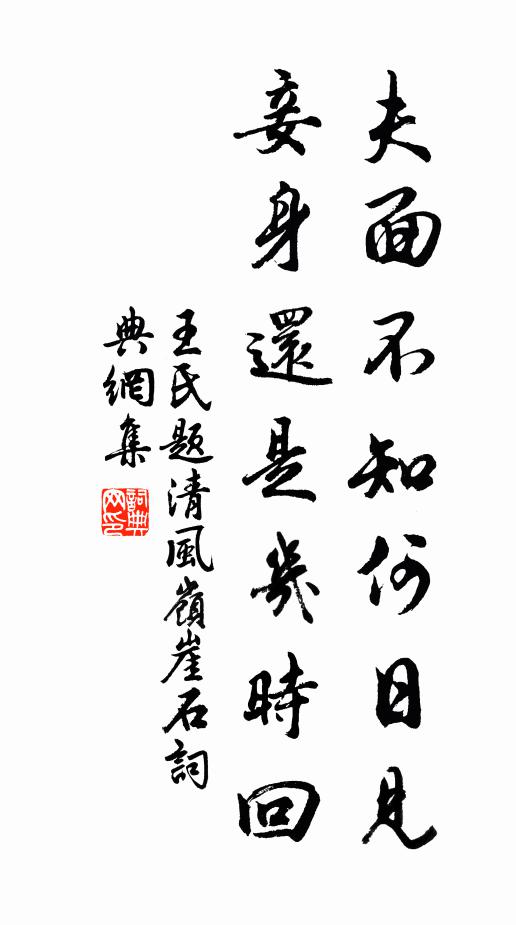 夫面不知何日見
妾身還是幾時回
王氏題清風嶺崖石詞
典網集
詞典網印